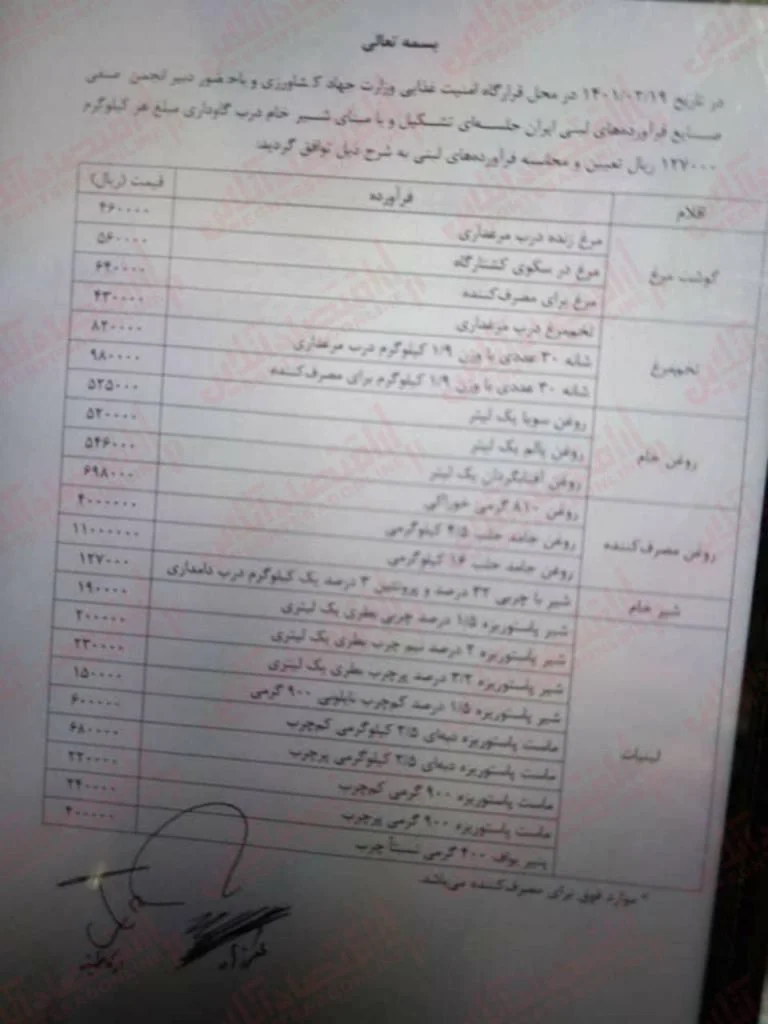 بسمه تعالی
در تاریخ ۱۴۰۱/۰۲/۱۹ در محل قرارگاه امنیت غذایی وزارت جهاد کشاورزی و باحضور دبیر انجمن صنفی
صنایع فرآورده‌های لبنی ایران جلسه‌ای تشکیل و با مبنای شیر خام درب گاوداری مبلغ هر کیلوگرم
۱۲۷۰۰۰ ریال تعیین و محاسبه فرآورده‌های لبنی به شرح ذیل توافق گردید:
اقلام فرآورده قیمت (ریال)
گوشت مرغ
مرغ زنده درب مرغداری ۴۶۰۰۰۰
مرغ در سکوی کشتارگاه ۵۶۰۰۰۰
مرغ برای مصرف‌کننده ۶۴۰۰۰۰
تخم‌مرغ
تخم‌مرغ درب مرغداری ۴۳۰۰۰۰
شانه ۳۰ عددی با وزن ۱/۹ کیلوگرم درب مرغداری ۸۲۰۰۰۰
شانه ۳۰ عددی با وزن ۱/۹ کیلوگرم برای مصرف‌کننده ۹۸۰۰۰۰
روغن خام
روغن سویا یک لیتر ۵۲۵۰۰۰
روغن پالم یک لیتر ۵۲۰۰۰۰
روغن آفتابگردان یک لیتر ۵۴۶۰۰۰
روغن مصرف‌کننده
روغن ۸۱۰ گرمی خوراکی ۶۹۸۰۰۰
روغن جامد حلب ۴/۵ کیلوگرمی ۴۰۰۰۰۰۰
روغن جامد حلب ۱۶ کیلوگرمی ۱۱۰۰۰۰۰۰
شیر خام
شیر با چربی ۳۲ درصد و پروتئین ۳ درصد یک کیلوگرم درب دامداری ۱۲۷۰۰۰
لبنیات
شیر پاستوریزه ۱/۵ درصد چربی بطری یک لیتری ۱۹۰۰۰۰
شیر پاستوریزه ۲ درصد نیم چرب بطری یک لیتری ۲۰۰۰۰۰
شیر پاستوریزه ۳/۲ درصد پرچرب بطری یک لیتری ۲۳۰۰۰۰
شیر پاستوریزه ۱/۵ درصد کم‌چرب نایلونی ۹۰۰ گرمی ۱۵۰۰۰۰
ماست پاستوریزه دبه‌ای ۲/۵ کیلوگرمی کم‌چرب ۶۰۰۰۰۰
ماست پاستوریزه دبه‌ای ۲/۵ کیلوگرمی پرچرب ۶۸۰۰۰۰
ماست پاستوریزه ۹۰۰ گرمی کم‌چرب ۲۲۰۰۰۰
ماست پاستوریزه ۹۰۰ گرمی پرچرب ۲۴۰۰۰۰
پنیر یواف ۴۰۰ گرمی نسبتاً چرب ۴۰۰۰۰۰
* موارد فوق برای مصرف‌کننده می‌باشد.
اقتصادآنلاین